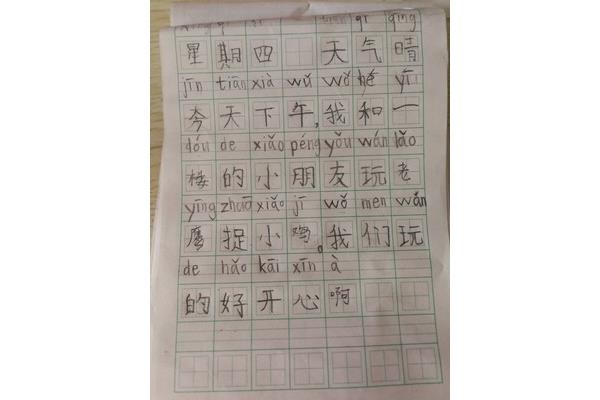 tiān qì qíng
星期四 天气晴
jīn tiān xià wǔ wǒ hé yī
今天下午,我和一
dóu de xiǎo péng yǒu wán lǎo
楼的小朋友玩老
yīng zhuō xiǎo jī wǒ men wán
鹰捉小鸡。我们玩
de hǎo kāi xīn à
的好开心啊